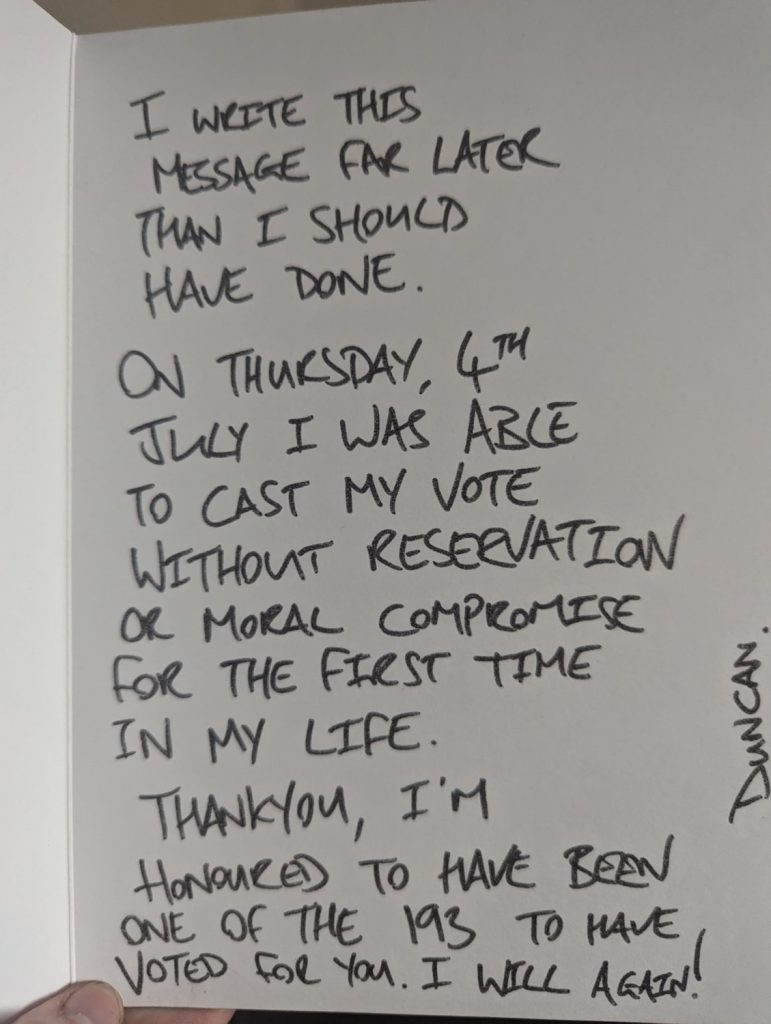 I WRITE THIS
MESSAGE FAR LATER
THAN I SHOULD
HAVE DONE.
ON THURSDAY, 4TH
JULY I WAS ABLE
TO CAST MY VOTE
WITHOUT RESERVATION
OR MORAL COMPROMISE
FOR THE FIRST TIME
IN MY LIFE.
THANKYOU, I'M
HONOURED TO HAVE BEEN
ONE OF THE 193 TO HAVE
VOTED FOR YOU. I WILL AGAIN!
DUNCAN.